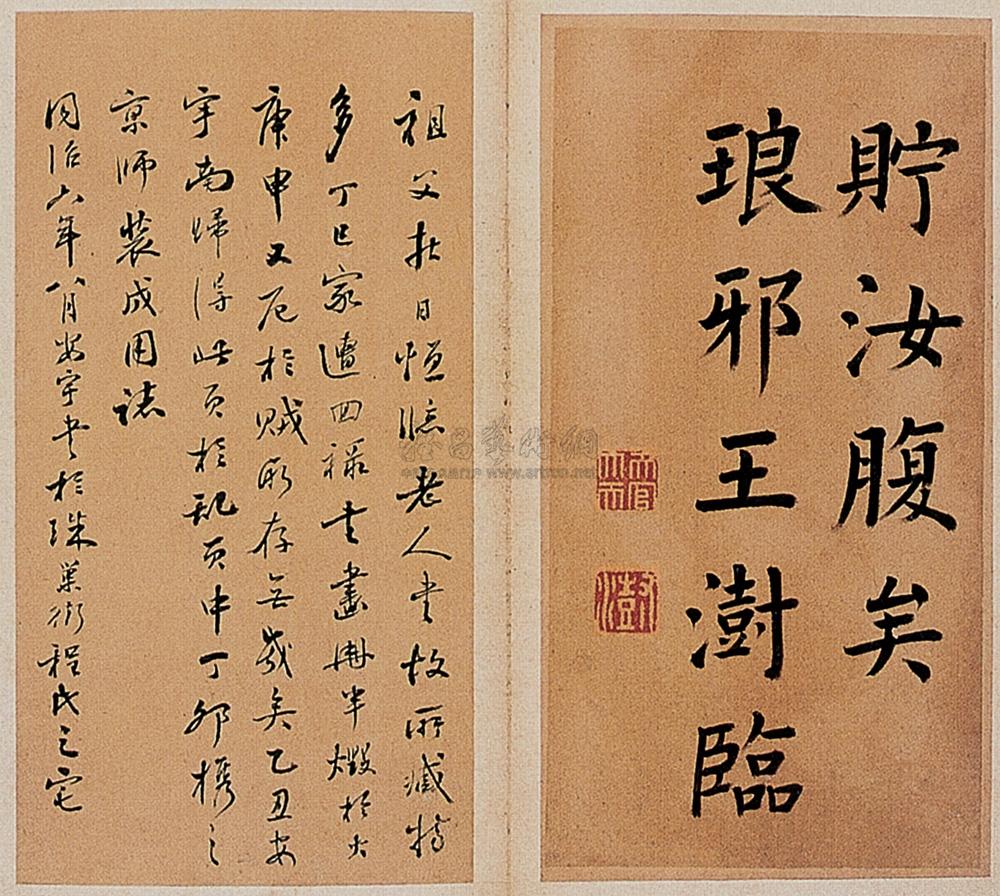 貯汝腹矣
琅邪王澍臨
祖父在日恒臨老人書故所藏特
多丁巳家遭回祿書畫冊半燬於火
庚申又厄於賊所存無幾矣乙丑安
宇南歸得此頁於亂頁中丁卯携之
京師裝成用誌
同治六年八月安宇書於珠巢街程氏之宅